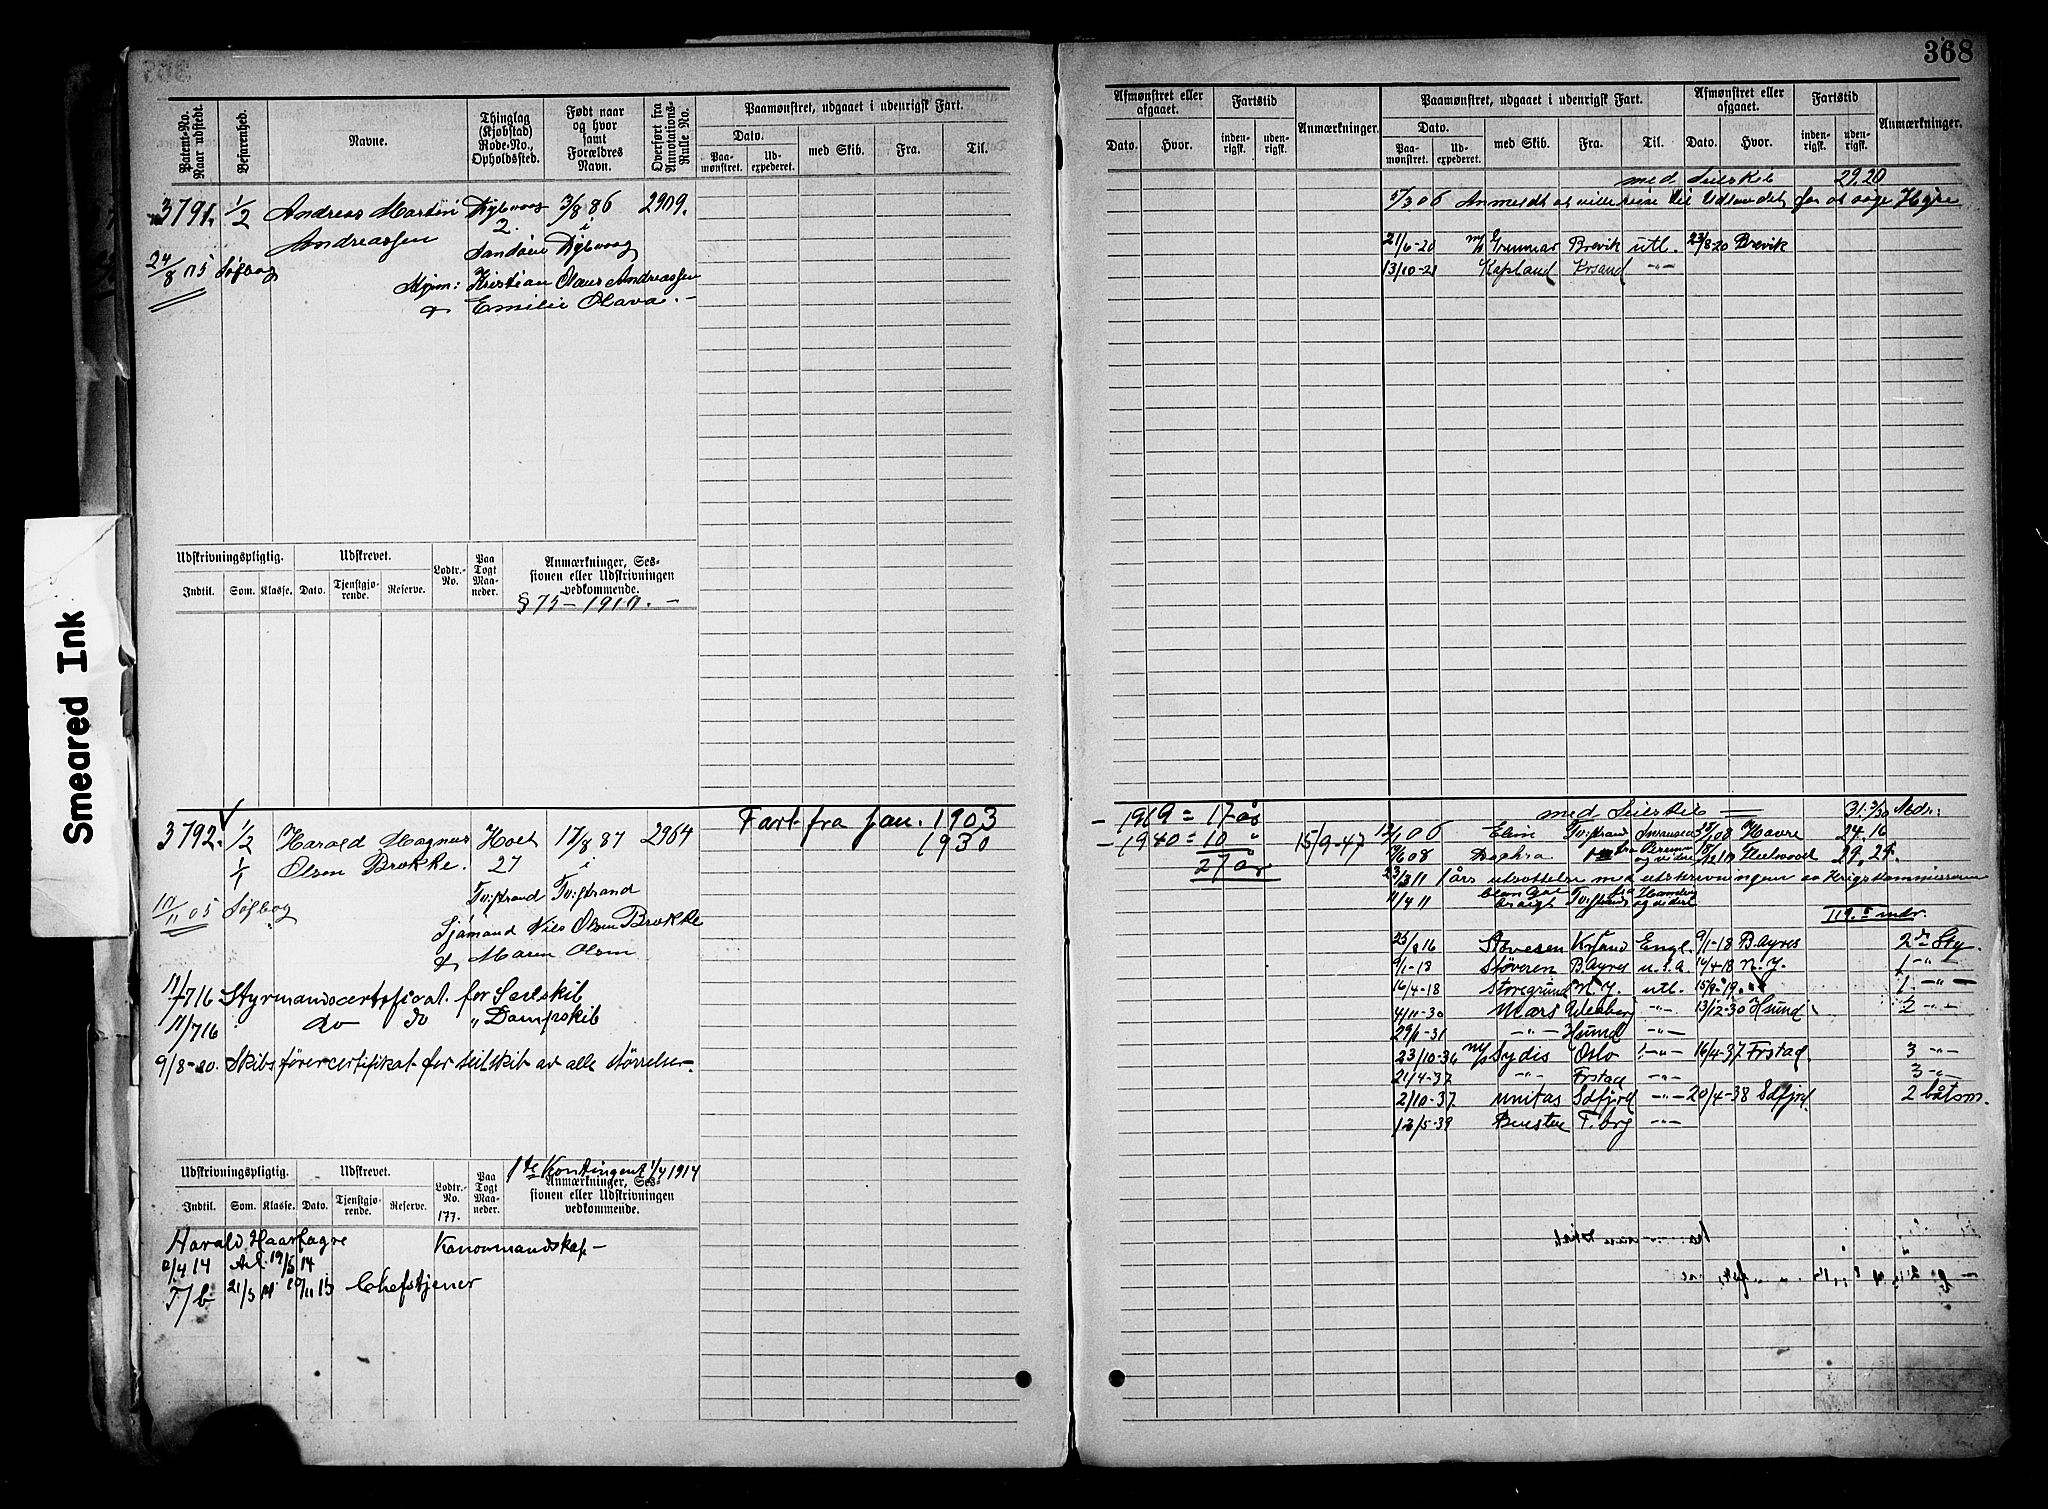 368
Patent-No. Naar udstedt.
Bejarenhed.
Navne.
Thinglag (Kjøbstad) Rode-No., Opholdssted.
Født naar og hvor samt Forældres Navn.
Overført fra Annotations-Rulle No.
Paamønstret, udgaaet i udenrigsk Fart.
Dato.
Paamønstret.
Udexpederet.
med Skib.
Fra.
Til.
Afmønstret eller afgaaet.
Dato.
Hvor.
Fartstid
indenrigsk.
udenrigsk.
Anmærkninger.
Paamønstret, udgaaet i udenrigsk Fart.
Dato.
Paamønstret.
Udexpederet.
med Skib.
Fra.
Til.
Afmønstret eller afgaaet.
Dato.
Hvor.
Fartstid
indenrigsk.
udenrigsk.
Anmærkninger.
3791. 1/2 Andreas Martin Dybvaag 3/8 86 2909.
Andreassen 2. i
Sandøen Dybvaag
24/8 05 Søfbog
Kristian Olaus Andreassen
& Emilie Olava. -
med Seilskib 29.20
5/3 06 Anmeldt at ville reise til Udlandet for at søge Hyre
21/6-20 Gunnar Brevik utl. 23/8 20 Brevik
13/10-21 Kapland Krsand -"-
Udskrivningspligtig.
Udskrevet.
Lodtr.-No.
Paa Togt Maaneder.
Anmærkninger, Sessionen eller Udskrivningen vedkommende.
Indtil. Som. Klasse. Dato. Tjenstgjørende. Reserve.
§ 75 - 1910. -
3792. 1/2 Harald Magnus Holt 17/8 87 2964
1/1 Olsen Brokke. 27 i
Tvedestrand Tvedestrand
10/11 05 Søfbog
Sjømand Nils Olsen Brokke
& Maren Olsen
11/7 16 Styrmandscertificat for Seilskib
11/7 16 do do " Dampskib
9/8-20. Skibsførercertifikat for seilskib av alle størrelser.
Fart fra Jan. 1903 - 1919 = 17 år
1930 - 1940 = 10 "
27 år
15/9-47
med Seilskib 31.3/30 Mdr:
12/1 06 Elin 08 Havre 24.16
19/6 08 Fleetwood 29.24.
23/3 11 1 års utsættelse med utskrivningen av Krigskommissæren
11/4 11
119.5 mdr.
25/8 16 Krsand Engl. 9/1-18 B.Ayres 2den Sty.
9/1-18 Støveren B.Ayres u.s.a. 14/4 18 N.Y. 1 -"-
16/4-18 Storegrund N.Y. utl. 15/9-19 1. -"-
4/11-30 Mars -"- 13/12-30 Hsund 2 -"-
29/1-31 -"- Hsund -"-
23/10-36 Sydis Oslo -"- 16/4-37 Frstad. 3 -"-
21/4-37 -"- Frstad -"- 3 -"-
2/10-37 Unitas Sdfjord -"- 20/4-38 Sdfjrd. 2 båtsm.
12/5-39 T.brg -"-
1ste Kontingent 1/4 1914
Udskrivningspligtig.
Udskrevet.
Lodtr.-No. 177.
Paa Togt Maaneder.
Anmærkninger, Sessionen eller Udskrivningen vedkommende.
Indtil. Som. Klasse. Dato. Tjenstgjørende. Reserve.
Harald Haarfagre Kanonmandskap -
2/4 14 Afl. 19/5 14
T/b 21/5 14 10/11 15 Chefstjener
Smeared Ink